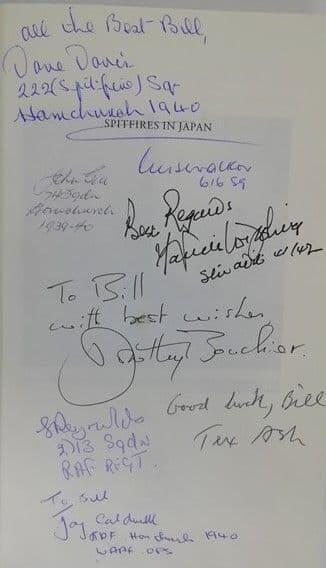 all the Best Bill,
Dave Davis
222 (Spitfire) Sqr
Hornchurch 1940
SPITFIRES IN JAPAN
616 Sq
John
Sqdn
Hornchurch
1939-40
Best Regards
41/42
To Bill
with best wishes,
Dorothy Bouchier.
Good luck, Bill
Tex Ash
S Reynolds
2713 Sqdn
RAF REGT.
To Bill
Joy Caldwell
RAF Hornchurch 1940
WAAF OPS